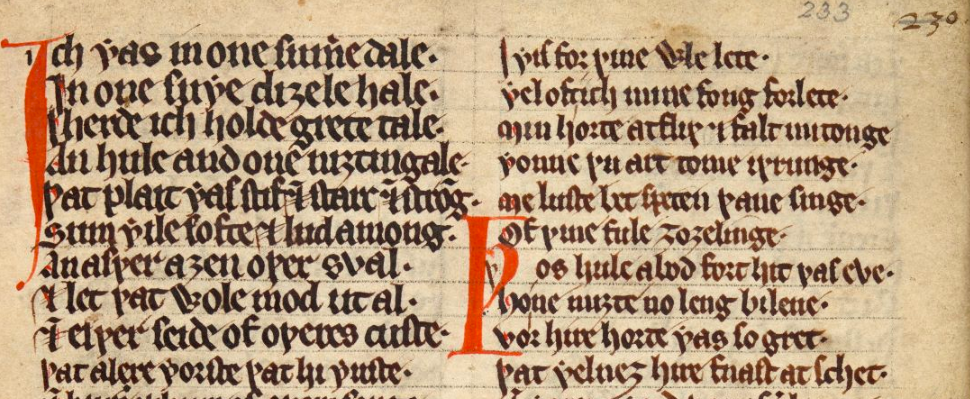 233 230
Ich ƿas in one sum̄e dale.
In one suþe diȝele hale.
Iherde ich holde grete tale.
An hule and one niȝtingale.
Þat plait ƿas stif ⁊ starc ⁊ strōg.
Sum ƿile softe ⁊ lud among.
An aiþer aȝen oþer sval.
⁊ let þat wole mod ut al.
⁊ eiþer seide of oþeres custe.
þat alere ƿorste þat hi ƿuste.
Hyis for þine vle lete.
ƿel oft ich mine song forlete.
Min horte atfliþ ⁊ falt mi tonge
ƿonne þu art to me iþrunge.
Me luste bet speten þane singe.
Of þine fule ȝoȝelinge.
Þos hule abod fort hit ƿas eve.
Ho ne miȝte no leng bileue.
vor hire horte ƿas so gret.
þat ƿel neȝ hire fnast atschet.